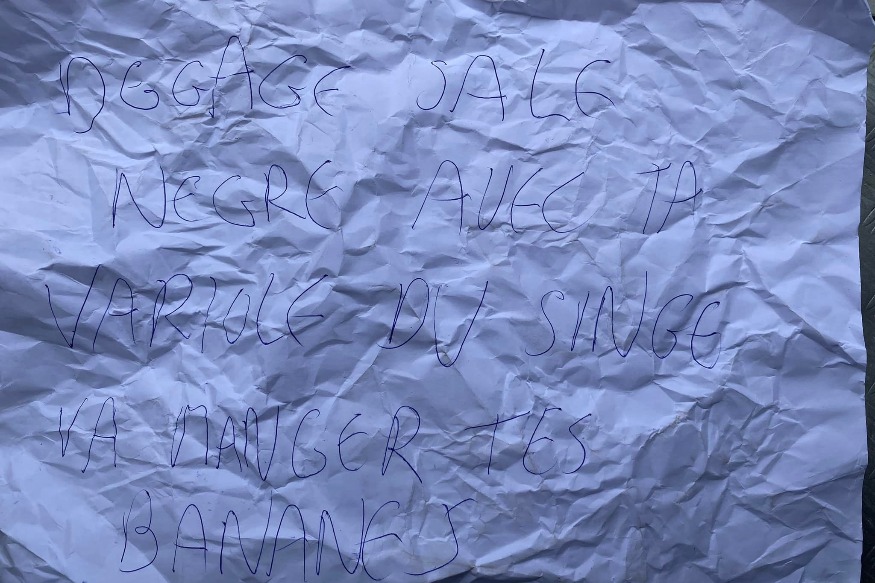 DEGGAGE SALE
NEGRE AVEC TA
VARIOLE DU SINGE
VA MANGER TES
BANANES